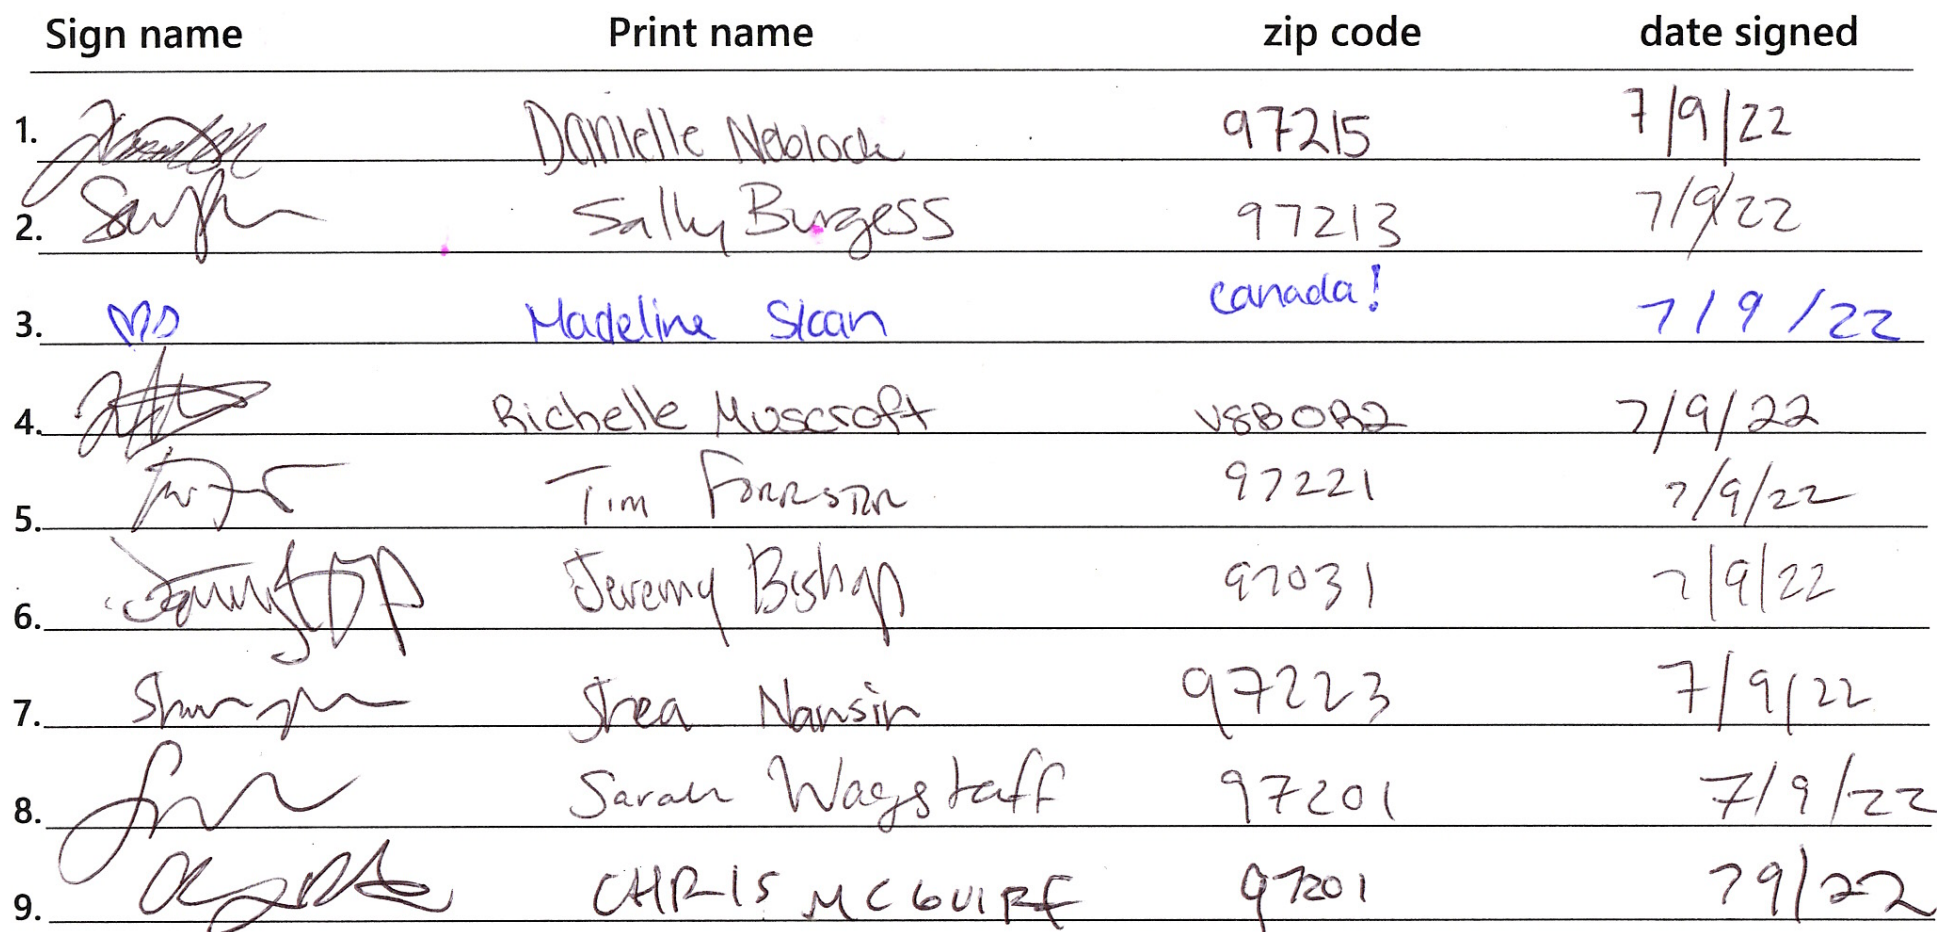 Sign name Print name zip code date signed
1. Danielle Neblock 97215 7/9/22
2. Sally Burgess 97213 7/9/22
3. MS Madeline Sloan Canada! 7/9/22
4. Richelle Muscroft V8B0R2 7/9/22
5. Tim Forrster 97221 7/9/22
6. Jeremy Bishop 97031 7/9/22
7. Shea Nansin 97223 7/9/22
8. Sarah Wagstaff 97201 7/9/22
9. CHRIS MCGUIRE 97201 79/22